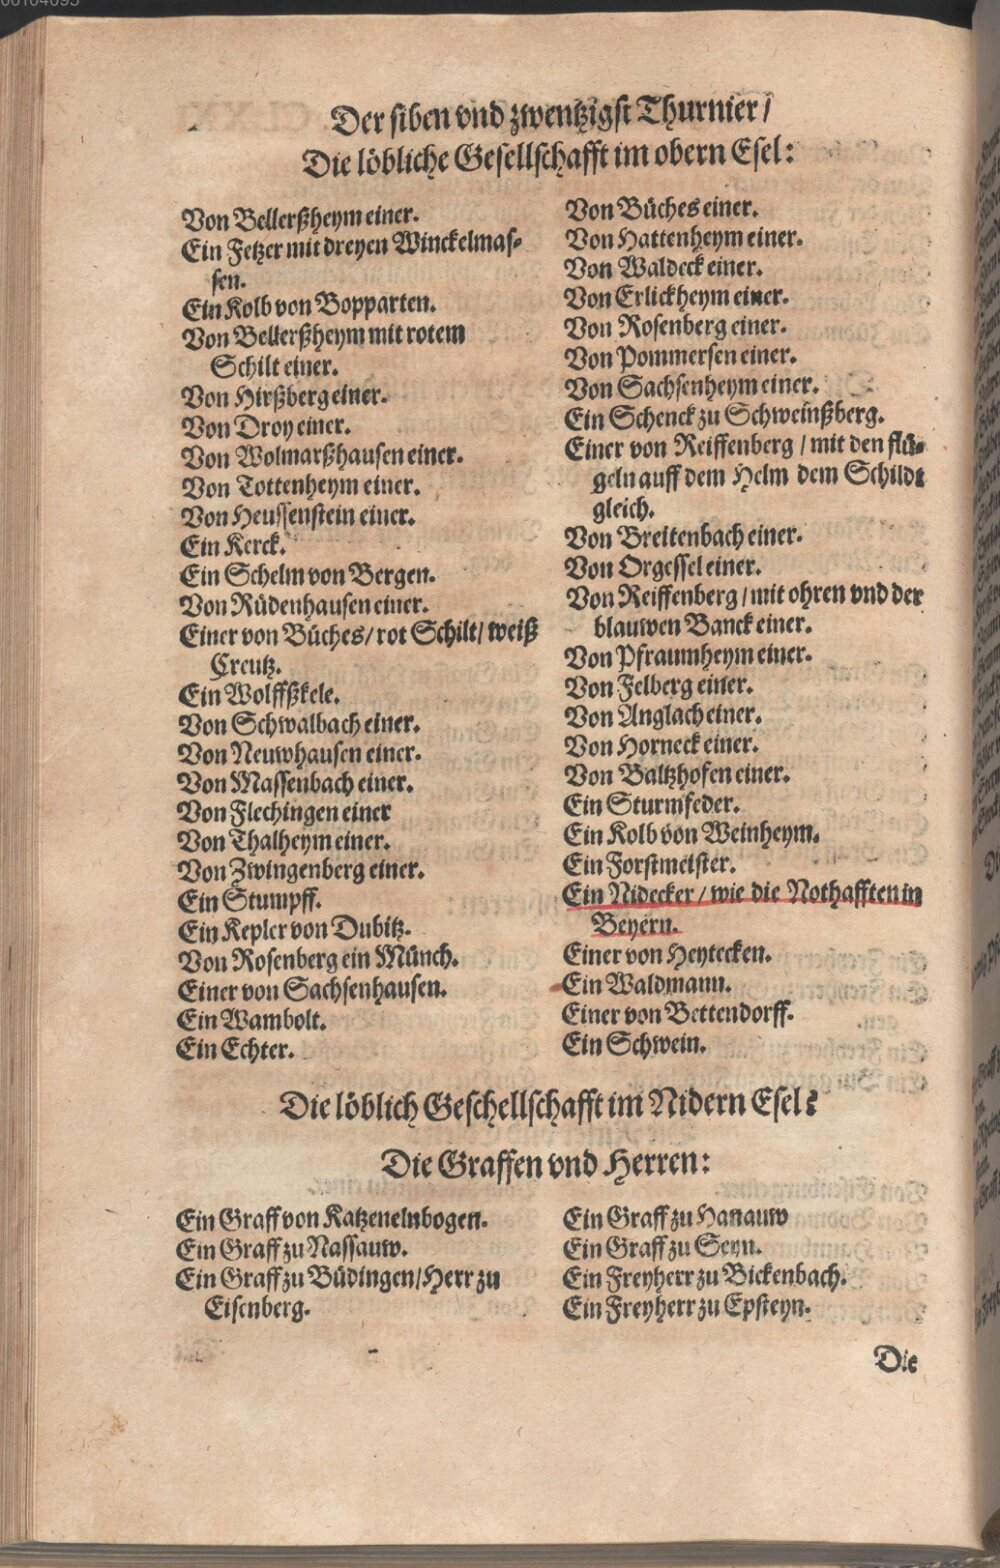 00104095
Der siben vnd zwentzigst Thurnier/
Die löbliche Gesellschafft im obern Esel:
Von Bellerßheym einer.
Ein Fetzer mit dreyen Winckelmas-
sen.
Ein Kolb von Bopparten.
Von Bellerßheym mit rotem
Schilt einer.
Von Hirßberg einer.
Von Droy einer.
Von Wolmarßhausen einer.
Von Tottenheym einer.
Von Heussenstein einer.
Ein Kerck.
Ein Schelm von Bergen.
Von Rüdenhausen einer.
Einer von Büches/ rot Schilt/ weiß
Creutz.
Ein Wolffßkele.
Von Schwalbach einer.
Von Neuwhausen einer.
Von Massenbach einer.
Von Flechingen einer
Von Thalheym einer.
Von Zwingenberg einer.
Ein Stumpff.
Ein Kepler von Dubitz.
Von Rosenberg ein Münch.
Einer von Sachsenhausen.
Ein Wambolt.
Ein Echter.
Von Büches einer.
Von Hattenheym einer.
Von Waldeck einer.
Von Erlickheym einer.
Von Rosenberg einer.
Von Pommersen einer.
Von Sachsenheym einer.
Ein Schenck zu Schweinßberg.
Einer von Reiffenberg / mit den flü-
geln auff dem Helm dem Schildt
gleich.
Von Breitenbach einer.
Von Orgessel einer.
Von Reiffenberg / mit ohren vnd der
blauwen Banck einer.
Von Pfraumheym einer.
Von Felberg einer.
Von Anglach einer.
Von Horneck einer.
Von Baltzhofen einer.
Ein Sturmfeder.
Ein Kolb von Weinheym.
Ein Forstmeister.
Ein Nidecker / wie die Nothafften in
Beyern.
Einer von Heytecken.
Ein Waldmann.
Einer von Bettendorff.
Ein Schwein.
Die löblich Geschellschafft im Nidern Esel:
Die Graffen vnd Herren:
Ein Graff von Katzenelnbogen.
Ein Graff zu Nassauw.
Ein Graff zu Büdingen/ Herr zu
Eisenberg.
Ein Graff zu Hanauw
Ein Graff zu Seyn.
Ein Freyherr zu Bickenbach.
Ein Freyherr zu Epsteyn.
Die